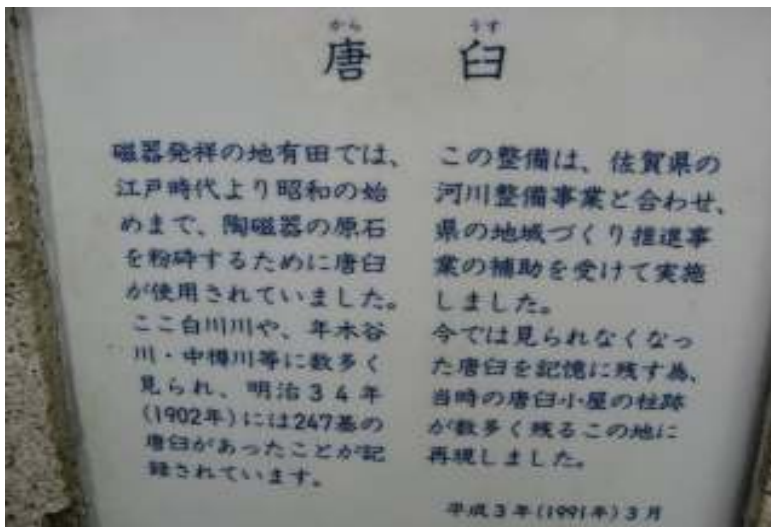 から うす
唐 臼
磁器発祥の地有田では、
江戸時代より昭和の始
めまで、陶磁器の原石
を粉砕するために唐臼
が使用されていました。
ここ白川川や、年木谷
川・中樽川等に数多く
見られ、明治34年
(1902年)には247基の
唐臼があったことが記
録されています。
この整備は、佐賀県の
河川整備事業と合わせ、
県の地域づくり推進事
業の補助を受けて実施
しました。
今では見られなくなっ
た唐臼を記憶に残す為、
当時の唐臼小屋の柱跡
が数多く残るこの地に
再現しました。
平成3年(1991年)3月